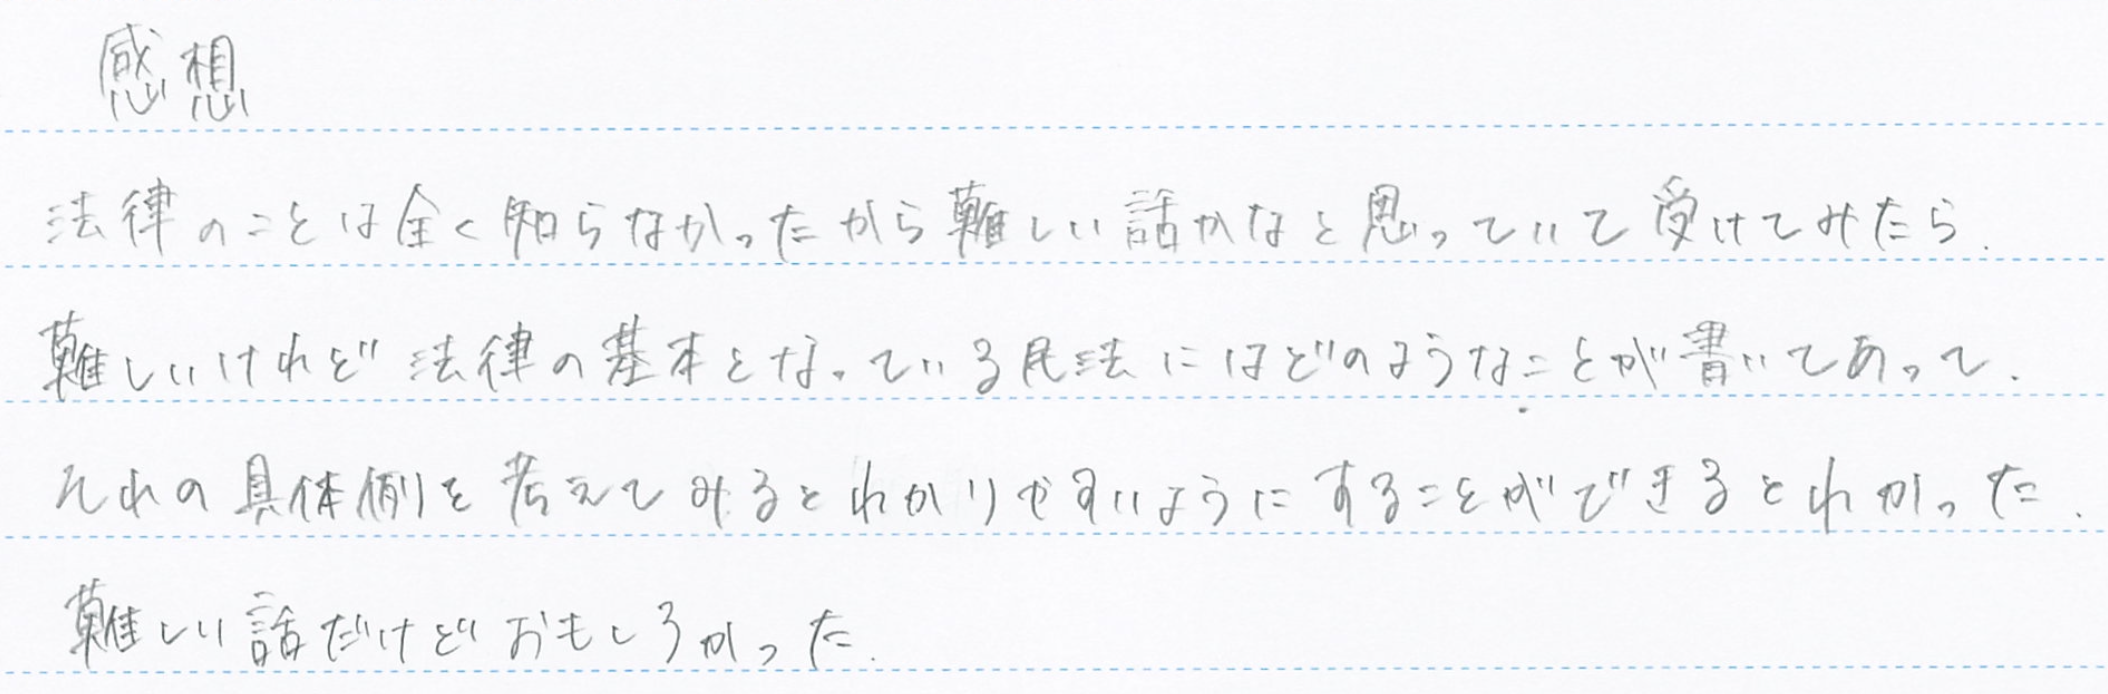 感想
法律のことは全く知らなかったから難しい話かなと思っていて受けてみたら.
難しいけれど法律の基本となっている民法にはどのようなことが書いてあって.
それの具体例を考えてみるとわかりやすいようにすることができるとわかった.
難しい話だけどおもしろかった.